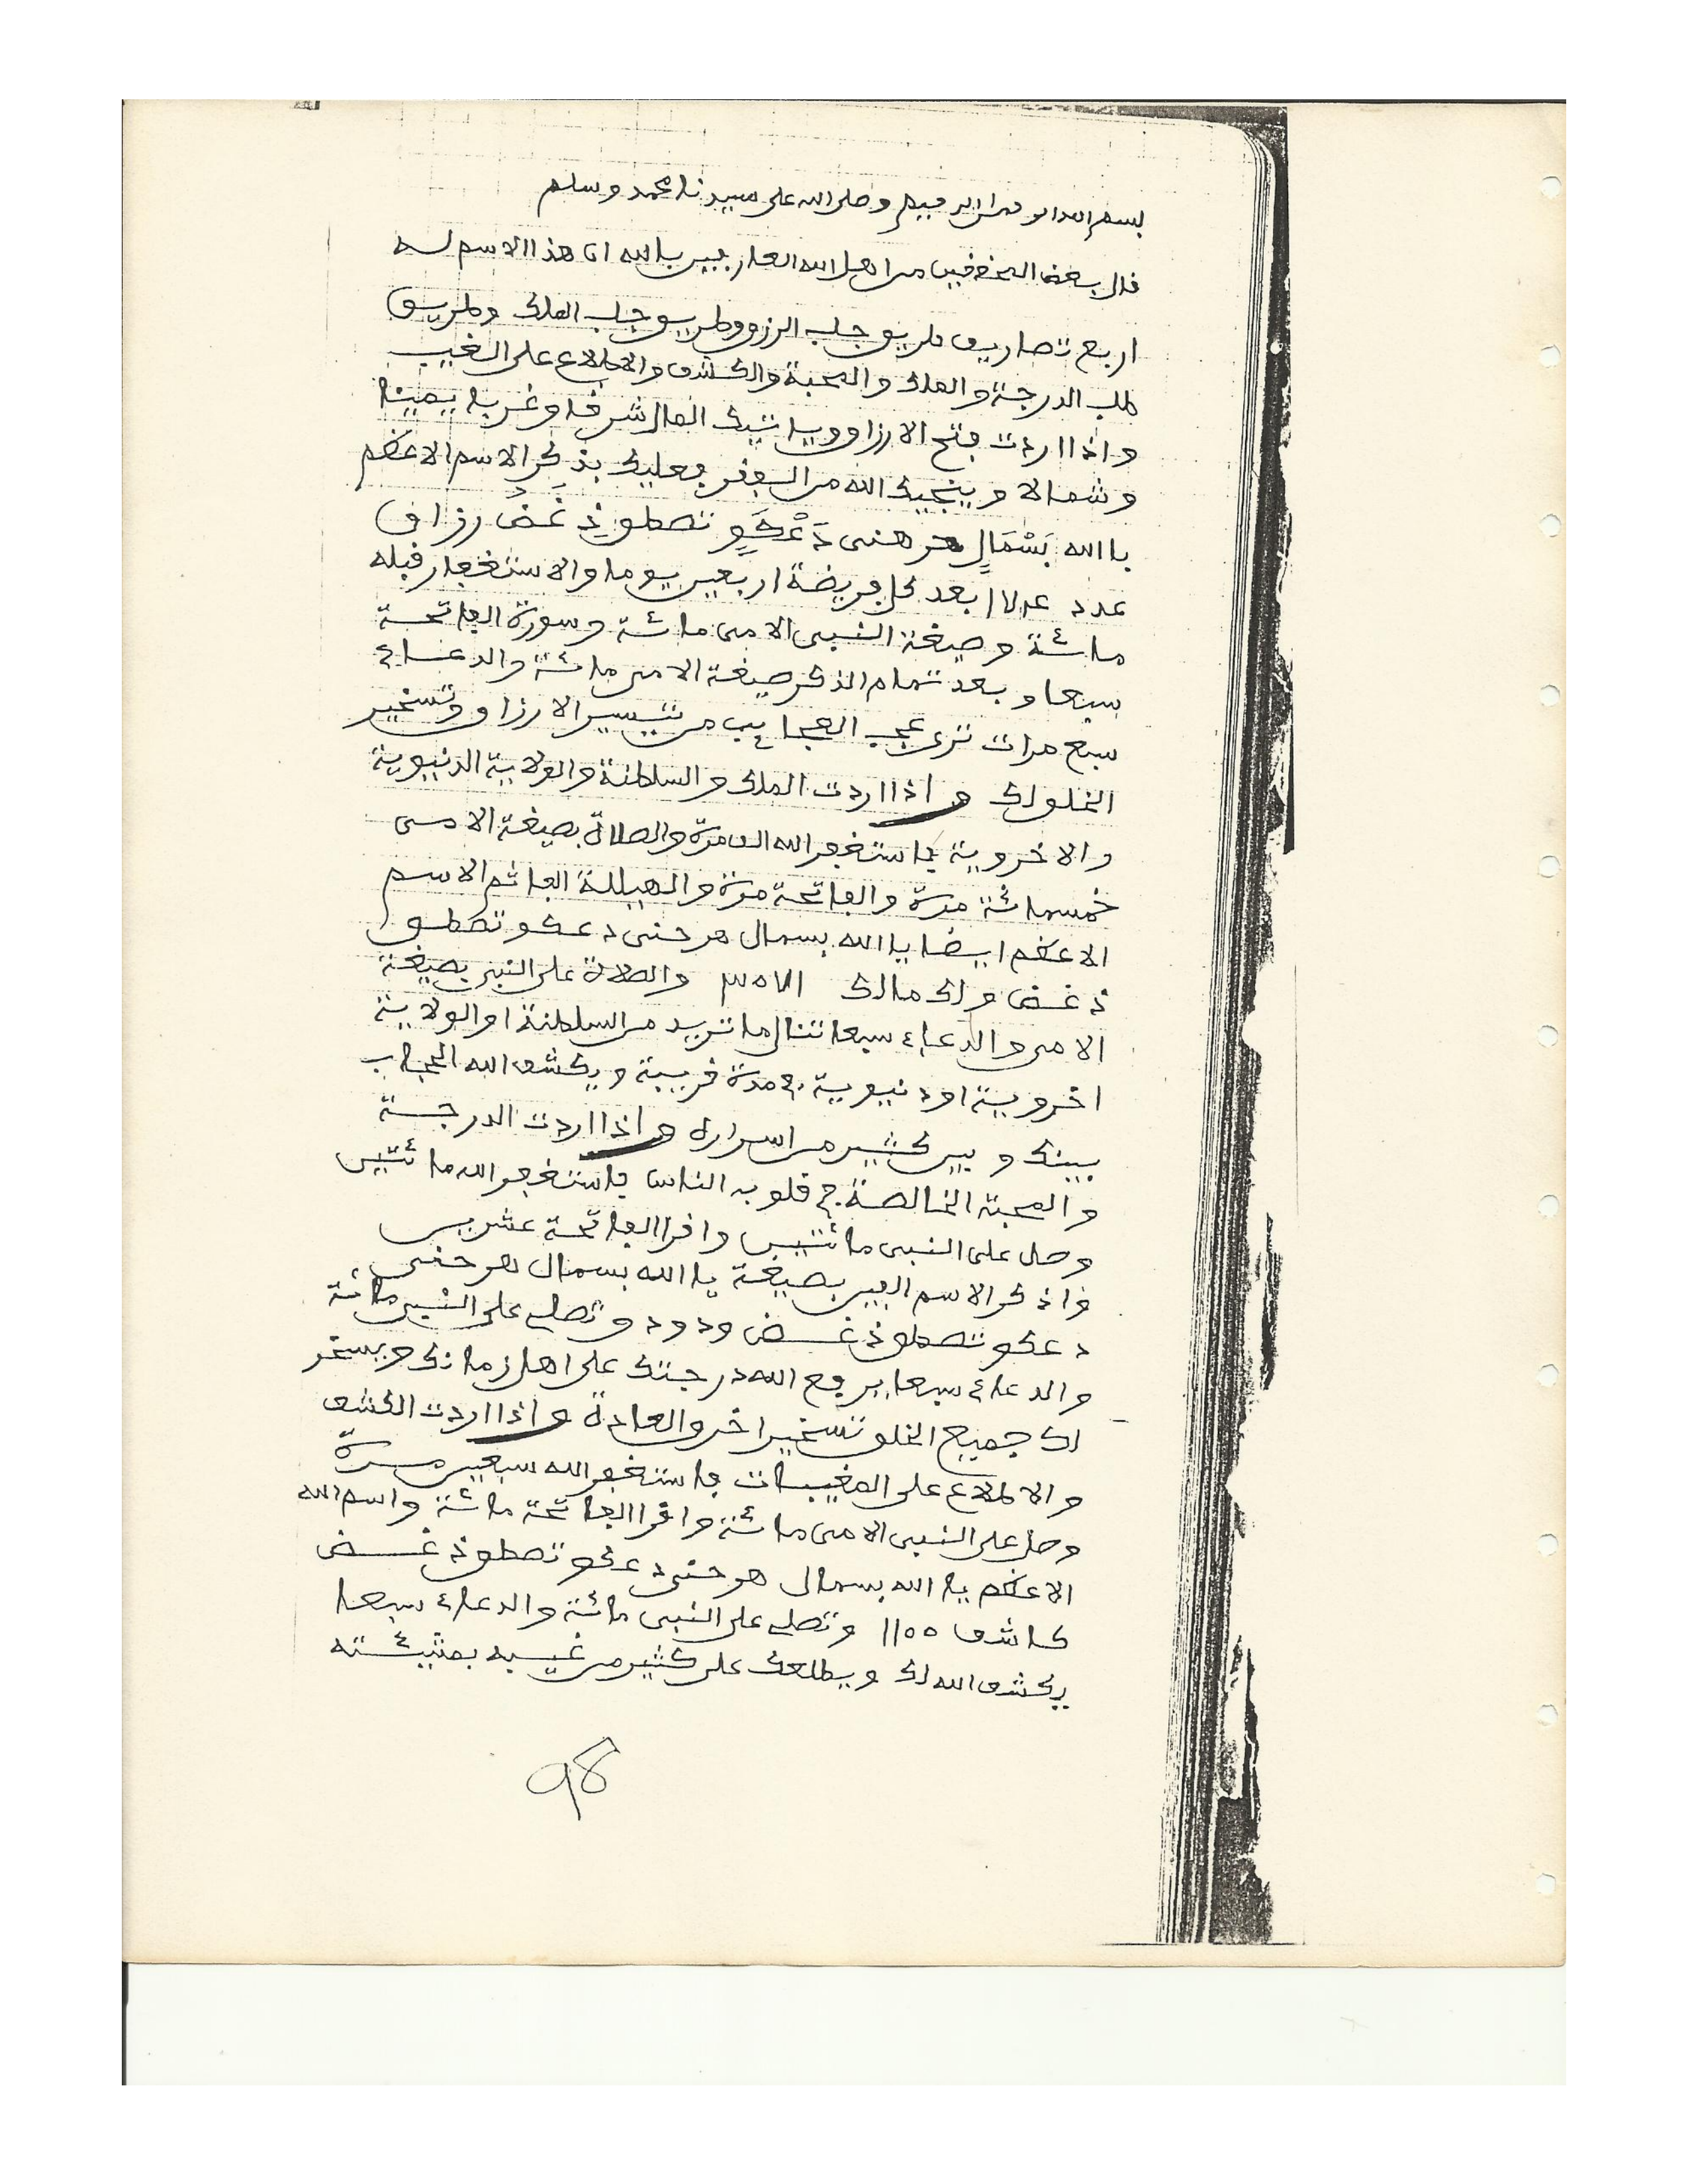 بسم الله الرحمن الرحيم وصلى الله على سيدنا محمد وسلم
قال بعض المحققين من اهل الله العارفين بالله ان هذا الاسم له
اربع تصاريف طريق جلب الرزق وطريق جلب الملك وطريق
طلب الدرجة والملك والمحبة والكشف والاطلاع على الغيب
واذا اردت فتح الارزاق وياتيك المال شرقا وغربا يمينا
وشمالا وينجيك الله من الفقر فعليك بذكر الاسم الاعظم
يا الله بَسْمَالٍ هر هنى دَعْكَوٍ تصطوذِ غَضُ رزاق
عدد بعد كل فريضة اربعين يوما والاستغفار قبله
مائة وصيغة النبى الامى مائة وسورة الفاتحة
سبعا وبعد تمام الذكر صيغة الامى مائة والدعاء
سبع مرات ترى عجب العجايب من تيسير الارزاق وتسخير
الخلو لك واذا اردت الملك والسلطنة والولاية الدنيوية
والاخروية فاستغفر الله الف مرة والصلاة بصيغة الامى
خمسمائة مرة والفاتحة مرة والهيللة الفا ثم الاسم
الاعظم ايضا يا الله بسمال هر حنى دعكو تصطو
ذغض ولك مالك والصلاة على النبى بصيغة
الامى والدعاء سبعا تنال ما تريد من السلطنة او الولاية
اخروية او دنيوية فى مدة قريبة ويكشف الله الحجاب
بينك وبين كثير من اسراره واذا اردت الدرجة
والمحبة الخالصة فى قلوب الناس فاستغفر الله مائتين
وصل على النبى مائتين واقرا الفاتحة عشرين
واذكر الاسم الفين بصيغة يا الله بسمال هر حنى
دعكو تصطوذغض ودود وتصلى على النبى مائة
والدعاء سبعا يرفع الله درجتك على اهل زمانك ويسخر
لك جميع الخلق تسخيرا خرق العادة واذا اردت الكشف
والاطلاع على المغيبات فاستغفر الله سبعين مرة
وصل على النبى الامى مائة واقرا الفاتحة مائة واسم الله
الاعظم يا الله بسمال هر حنى دعكو تصطوذغض
كاشف 1100 وتصلى على النبى مائة والدعاء سبعا
يكشف الله لك ويطلعك على كثير من غيبه بمشيئته
98